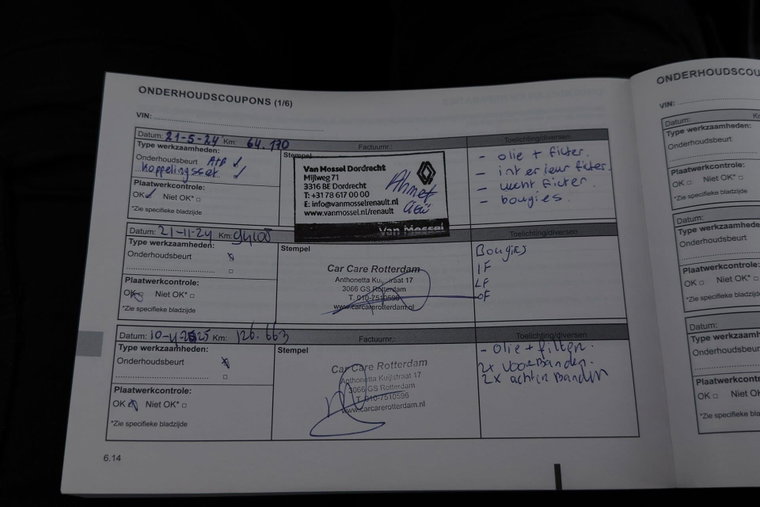 ONDERHOUDSCOUPONS (1/6)
VIN:
Datum: 21-5-24 Km: 64.170
Factuurnr.:
Toelichting/diversen
Type werkzaamheden:
Onderhoudsbeurt
Koppelingsset.
Plaatwerkcontrole:
OK Niet OK*
*Zie specifieke bladzijde
Stempel
Van Mossel Dordrecht
Mijlweg 71
3316 BE Dordrecht
T: +31 78 617 00 00
E: info@vanmosselrenault.nl
www.vanmossel.nl/renault
Van Mossel
Ahmet
- olie + filter.
- interieur filter.
- lucht filter.
- bougies.
Datum: 21-11-24 Km:
Factuurnr.:
Toelichting/diversen
Type werkzaamheden:
Onderhoudsbeurt
Plaatwerkcontrole:
OK Niet OK*
*Zie specifieke bladzijde
Stempel
Car Care Rotterdam
Anthonetta Kuijlstraat 17
3066 GS Rotterdam
T. 010-7510596
www.carcarerotterdam.nl
Bougies
IF
LF
OF
Datum: 10-4-2025 Km: 126.663
Factuurnr.:
Toelichting/diversen
Type werkzaamheden:
Onderhoudsbeurt
Plaatwerkcontrole:
OK Niet OK*
*Zie specifieke bladzijde
Stempel
Car Care Rotterdam
Anthonetta Kuijlstraat 17
3066 GS Rotterdam
T. 010-7510596
www.carcarerotterdam.nl
- olie + filter.
2x voorbanden.
2x achter banden
6.14
ONDERHOUDSCOU
VIN:
Datum:
Type werkzaamheden:
Onderhoudsbeurt
Plaatwerkcontrole:
OK Niet OK*
*Zie specifieke bladz
Datum:
Type werkzaamheden:
Onderhoudsbeurt
Plaatwerkcontrole:
OK Niet OK*
*Zie specifieke bladz
Datum:
Type werkzaamheden:
Onderhoudsbeurt
Plaatwerkcontrole:
OK Niet OK*
*Zie specifieke blad